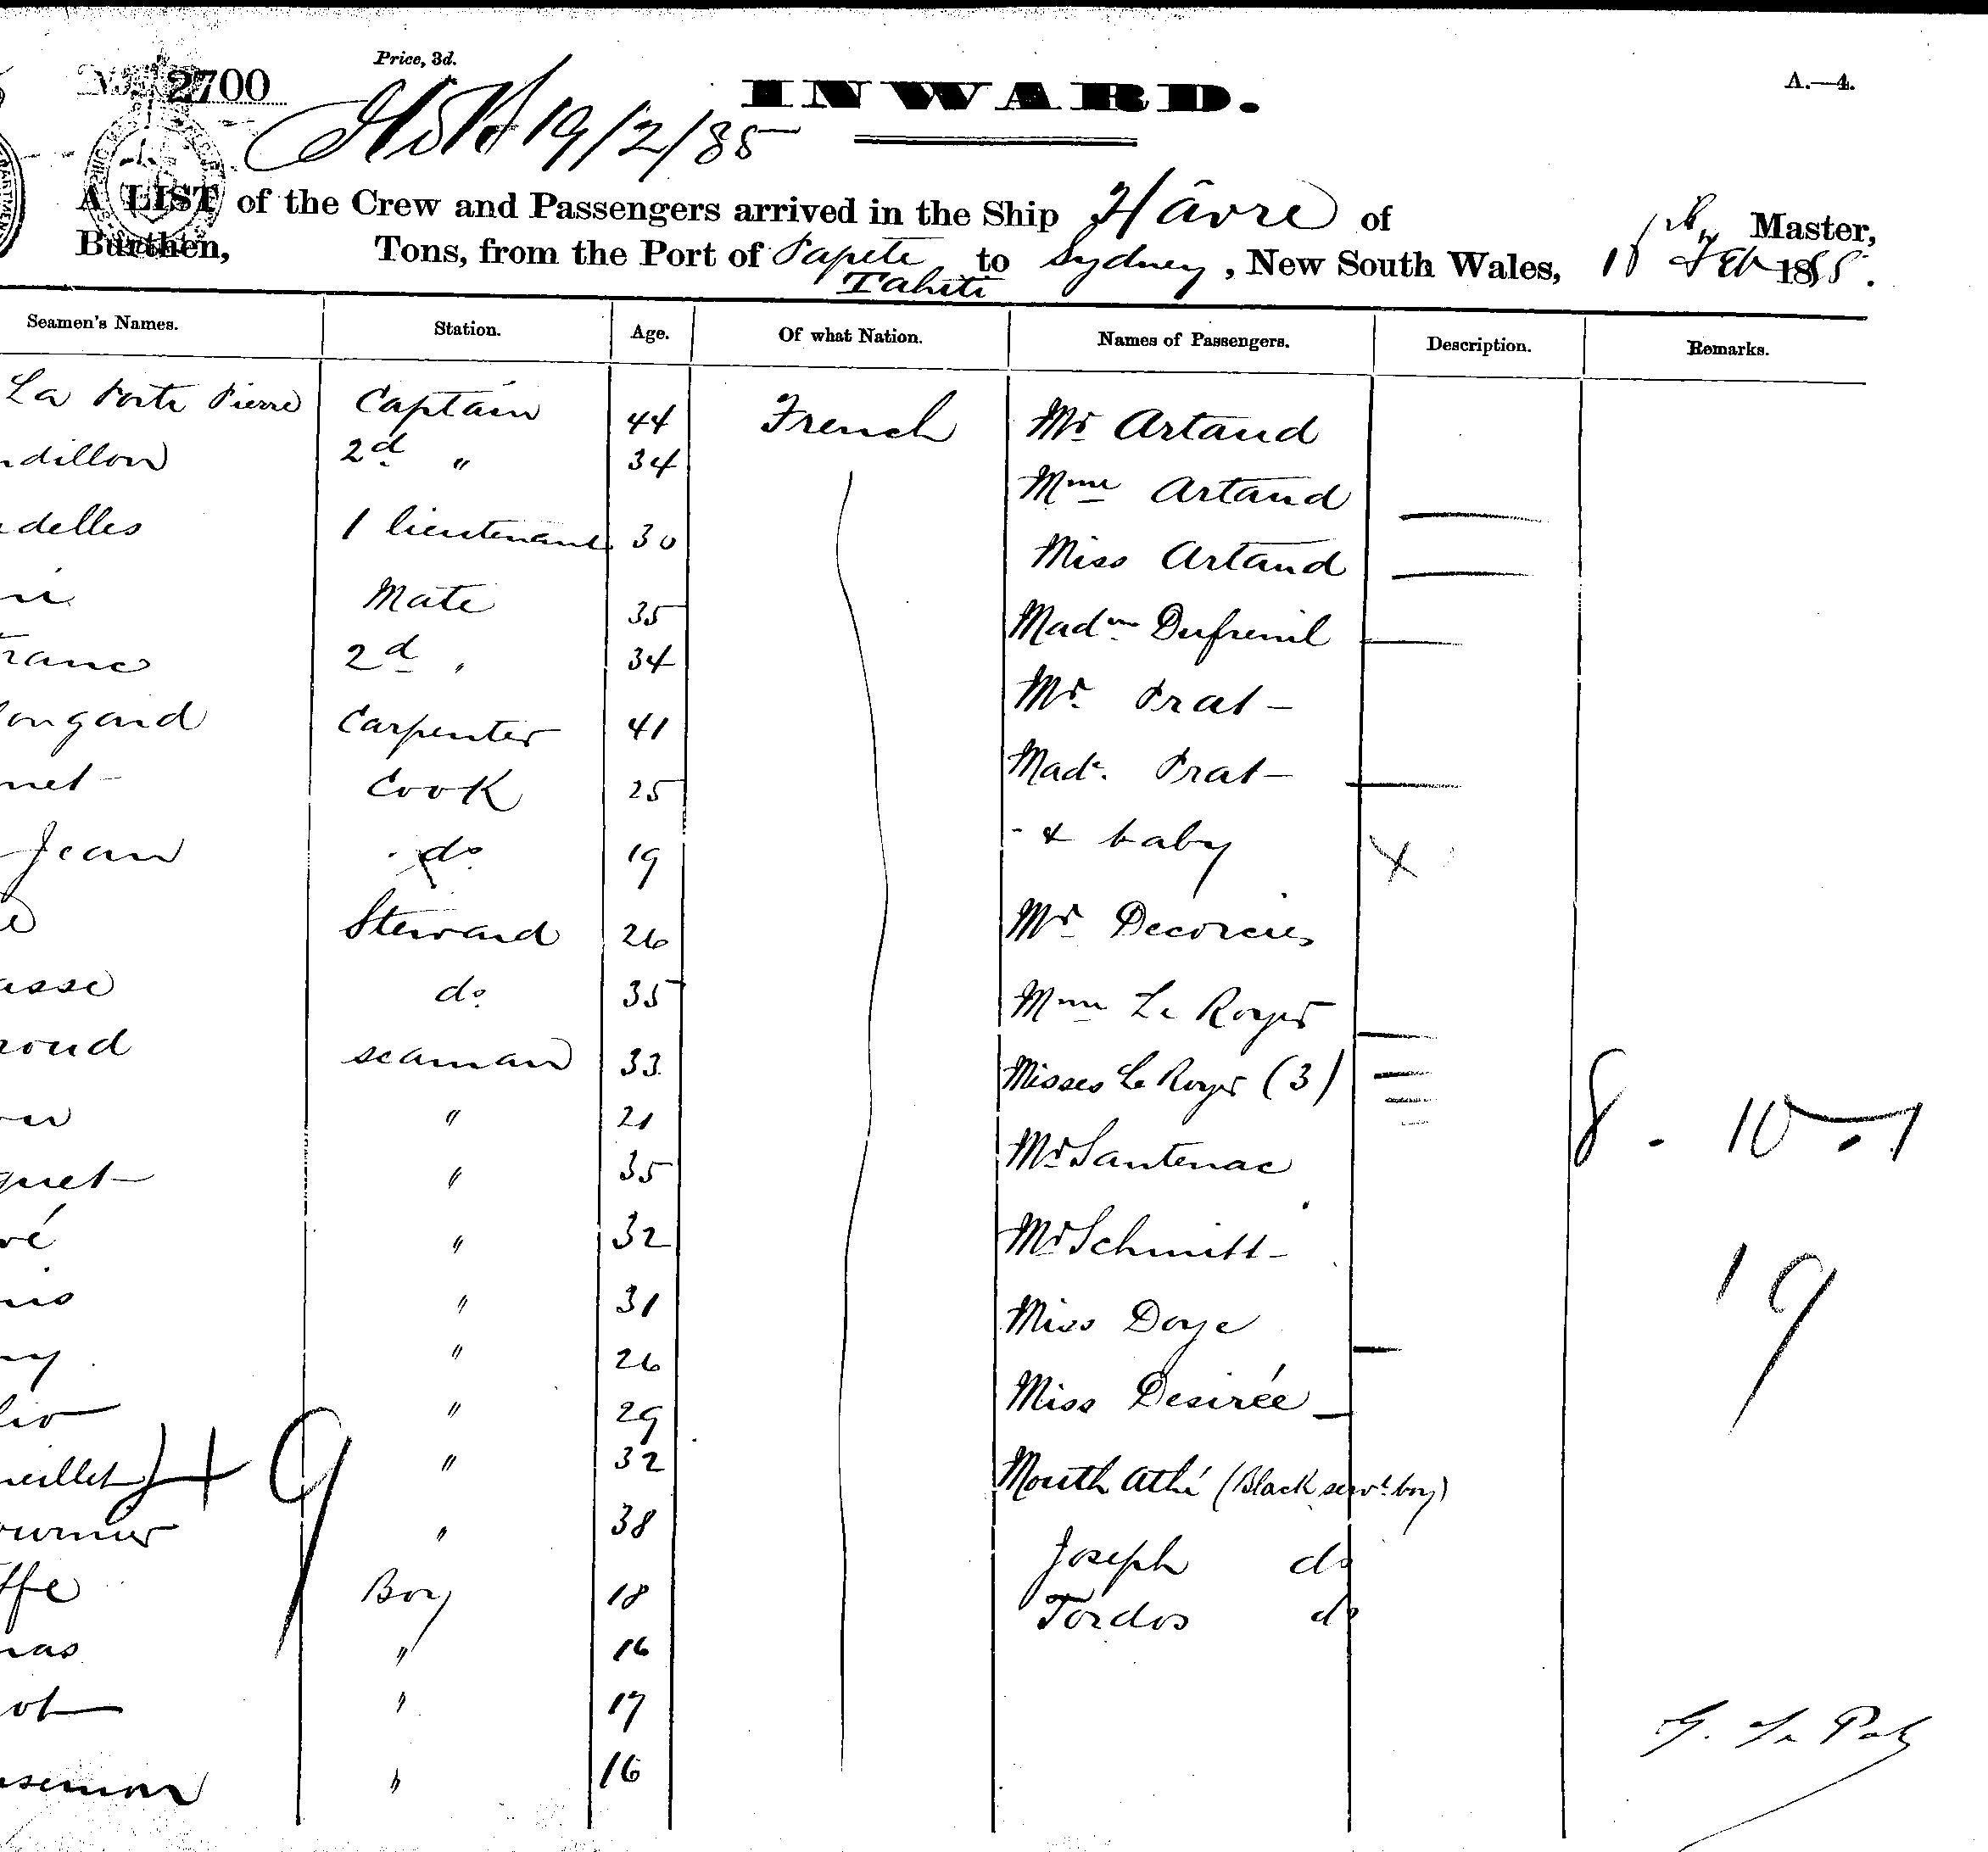 No. 2700
Price, 3d.
INWARD.
A.—4.
19/2/85
A LIST of the Crew and Passengers arrived in the Ship Hâvre of Master,
Burthen, Tons, from the Port of Papete Tahiti to Sydney, New South Wales, Feb 1885.
Seamen's Names. Station. Age. Of what Nation. Names of Passengers. Description. Remarks.
La Porte Pierre Captain 44 French Mr Artaud
dillon 2d " 34
Mme Artaud
delles 1 lieutenant 30 Miss Artaud
Mate 35 Madme Dufrenil
ranc 2d " 34
Mr. Prat
ongard Carpenter 41
net Cook 25 Made. Prat
Jean do 19 & baby X
Steward 26 Mr
asse do. 35 Mme Le Royer
roud seaman 33 Misses Le Royer (3)
" 21 8 . 10 . 1
quet " 35 Mr Santenac
vé " 32 Mr Schmitt
" 31 Miss Doye 19
" 26
lio " 29 Miss Desirée
eillet + 9 " 32 Mouth Athé (Black servt boy)
ournier " 38
Joseph do
ffe Boy 18 Tordos do
mas " 16
ot " 17
" 16